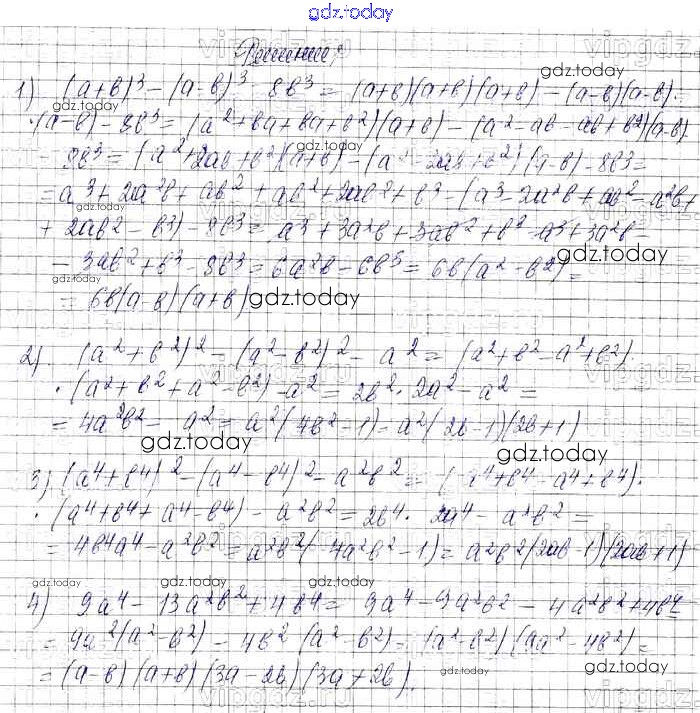 gdz.today
Решение:
1) (a+b)³ - (a-b)³ - 8b³ = (a+b)(a+b)(a+b) - (a-b)(a-b)·
·(a-b) - 8b³ = (a²+ba+ba+b²)(a+b) - (a²-ab-ab+b²)(a-b)
- 8b³ = (a²+2ab+b²)(a+b) - (a²-2ab+b²)(a-b) - 8b³ =
= a³ + 2a²b + ab² + ab² + 2ab² + b³ - (a³ - 2a²b + ab² - a²b +
+ 2ab² - b³) - 8b³ = a³ + 3a²b + 3ab² + b³ - a³ + 3a²b -
- 3ab² + b³ - 8b³ = 6a²b - 6b³ = 6b(a² - b²) =
= 6b(a-b)(a+b)
2). (a²+b²)² - (a²-b²)² - a² = (a²+b²-a²+b²)·
·(a²+b²+a²-b²) - a² = 2b²·2a² - a² =
= 4a²b² - a² = a²(4b²-1) - a²(2b-1)(2b+1)
3) (a⁴+b⁴)² - (a⁴-b⁴)² - a²b² = (a⁴+b⁴-a⁴+b⁴)·
·(a⁴+b⁴+a⁴-b⁴) - a²b² = 2b⁴·2a⁴ - a²b² =
= 4b⁴a⁴ - a²b² = a²b²(4a²b²-1) = a²b²(2ab-1)(2ab+1)
4) 9a⁴ - 13a²b² + 4b⁴ = 9a⁴ - 9a²b² - 4a²b² + 4b⁴ =
= 9a²(a²-b²) - 4b²(a²-b²) = (a²-b²)(9a²-4b²) =
= (a-b)(a+b)(3a-2b)(3a+2b).